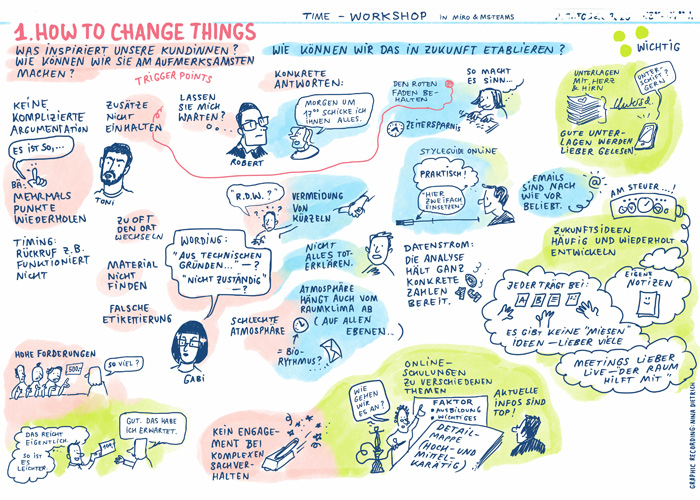 TIME – WORKSHOP IN MIRO & MSTEAMS
1. HOW TO CHANGE THINGS
WAS INSPIRIERT UNSERE KUNDINNEN?
WIE KÖNNEN WIR SIE AM AUFMERKSAMSTEN
MACHEN?
TRIGGER POINTS
WIE KÖNNEN WIR DAS IN ZUKUNFT ETABLIEREN?
WICHTIG
KEINE
KOMPLIZIERTE
ARGUMENTATION
ES IST SO,...
BÄ:
MEHRMALS
PUNKTE
WIEDERHOLEN
TIMING:
RÜCKRUF Z.B.
FUNKTIONIERT
NICHT
ZUSÄTZE
NICHT
EINHALTEN
TONI
ZU OFT
DEN ORT
WECHSELN
MATERIAL
NICHT
FINDEN
FALSCHE
ETIKETTIERUNG
LASSEN
SIE MICH
WARTEN?
ROBERT
"R.D.W.?"
? ? ?
WORDING:
"AUS TECHNISCHEN
GRÜNDEN..." –?
"NICHT ZUSTÄNDIG"
–?
GABI
SCHLECHTE
ATMOSPHÄRE
= BIO-
RYTHMUS?
KONKRETE
ANTWORTEN:
MORGEN UM
SCHICKE ICH
IHNEN ALLES.
DEN ROTEN
FADEN BE-
HALTEN
SO MACHT
ES SINN...
ZEITERSPARNIS
VERMEIDUNG
VON
KÜRZELN
NICHT
ALLES TOT-
ERKLÄREN.
ATMOSPHÄRE
HÄNGT AUCH VOM
RAUMKLIMA AB
(AUF ALLEN
EBENEN..)
STYLEGUIDE ONLINE
PRAKTISCH!
"HIER
ZWEIFACH
EINSETZEN"
DATENSTROM:
DIE ANALYSE
HÄLT GANZ
KONKRETE
ZAHLEN
BEREIT.
UNTERLAGEN
MIT HERZ
& HIRN
UNTER-
SCHRIFT?
GERN!
GUTE UNTER-
LAGEN WERDEN
LIEBER GELESEN
EMAILS
SIND NACH
WIE VOR
BELIEBT.
@
AM STEUER...!
ZUKUNFTSIDEEN
HÄUFIG UND WIEDERHOLT
ENTWICKELN
JEDER TRÄGT BEI:
A B E C
EIGENE
NOTIZEN
ES GIBT KEINE "MIESEN"
IDEEN – LIEBER VIELE
MEETINGS LIEBER
LIVE – DER RAUM
HILFT MIT"
HOHE FORDERUNGEN
500,-
SO VIEL?
DAS REICHT
EIGENTLICH.
SO IST
ES
LEICHTER.
GUT. DAS HABE
ICH ERWARTET.
KEIN ENGAGE-
MENT BEI
KOMPLEXEN
SACHVER-
HALTEN
ONLINE-
SCHULUNGEN
ZU VERSCHIEDENEN
THEMEN
WIE
GEHEN
WIR
ES AN?
FAKTOR
AUSBILDUNG
WICHTIGES
DETAIL-
MAPPE
(HOCH- UND
MITTEL-
KARÄTIG)
AKTUELLE
INFOS SIND
TOP!
GRAPHIC RECORDING: NINA DIETRICH